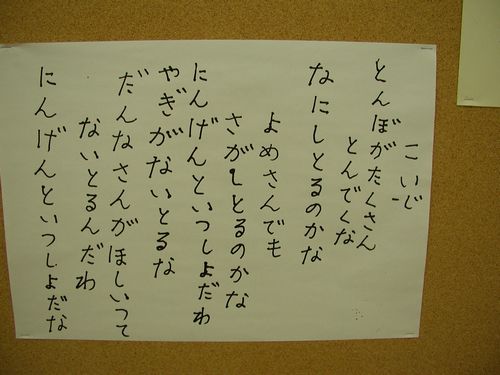 こいじ
とんぼがたくさん
とんでくな
なにしとるのかな
よめさんでも
さがしとるのかな
にんげんといっしょだわ
やぎがないとるな
だんなさんがほしいって
ないとるんだわ
にんげんといっしょだな